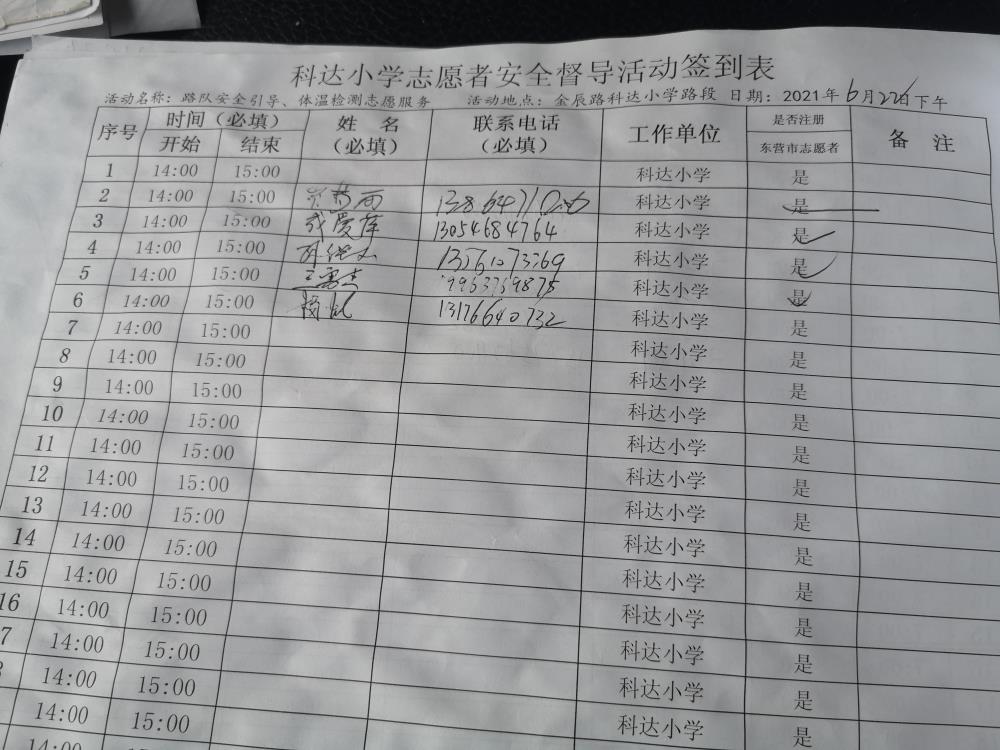 科达小学志愿者安全督导活动签到表
活动名称：路队安全引导、体温检测志愿服务 活动地点：金辰路科达小学路段 日期：2021年6月22日下午
序号 时间（必填） 姓 名（必填） 联系电话（必填） 工作单位 是否注册 备 注
开始 结束 东营市志愿者
1 14:00 15:00 科达小学 是
2 14:00 15:00 科达小学 是
3 14:00 15:00 13054684764 科达小学 是
4 14:00 15:00 科达小学 是
5 14:00 15:00 科达小学 是
6 14:00 15:00 13176640732 科达小学 是
7 14:00 15:00 科达小学 是
8 14:00 15:00 科达小学 是
9 14:00 15:00 科达小学 是
10 14:00 15:00 科达小学 是
11 14:00 15:00 科达小学 是
12 14:00 15:00 科达小学 是
13 14:00 15:00 科达小学 是
14 14:00 15:00 科达小学 是
15 14:00 15:00 科达小学 是
16 14:00 15:00 科达小学 是
7 14:00 15:00 科达小学 是
14:00 15:00 科达小学 是
14:00 15:00 科达小学 是
14:00